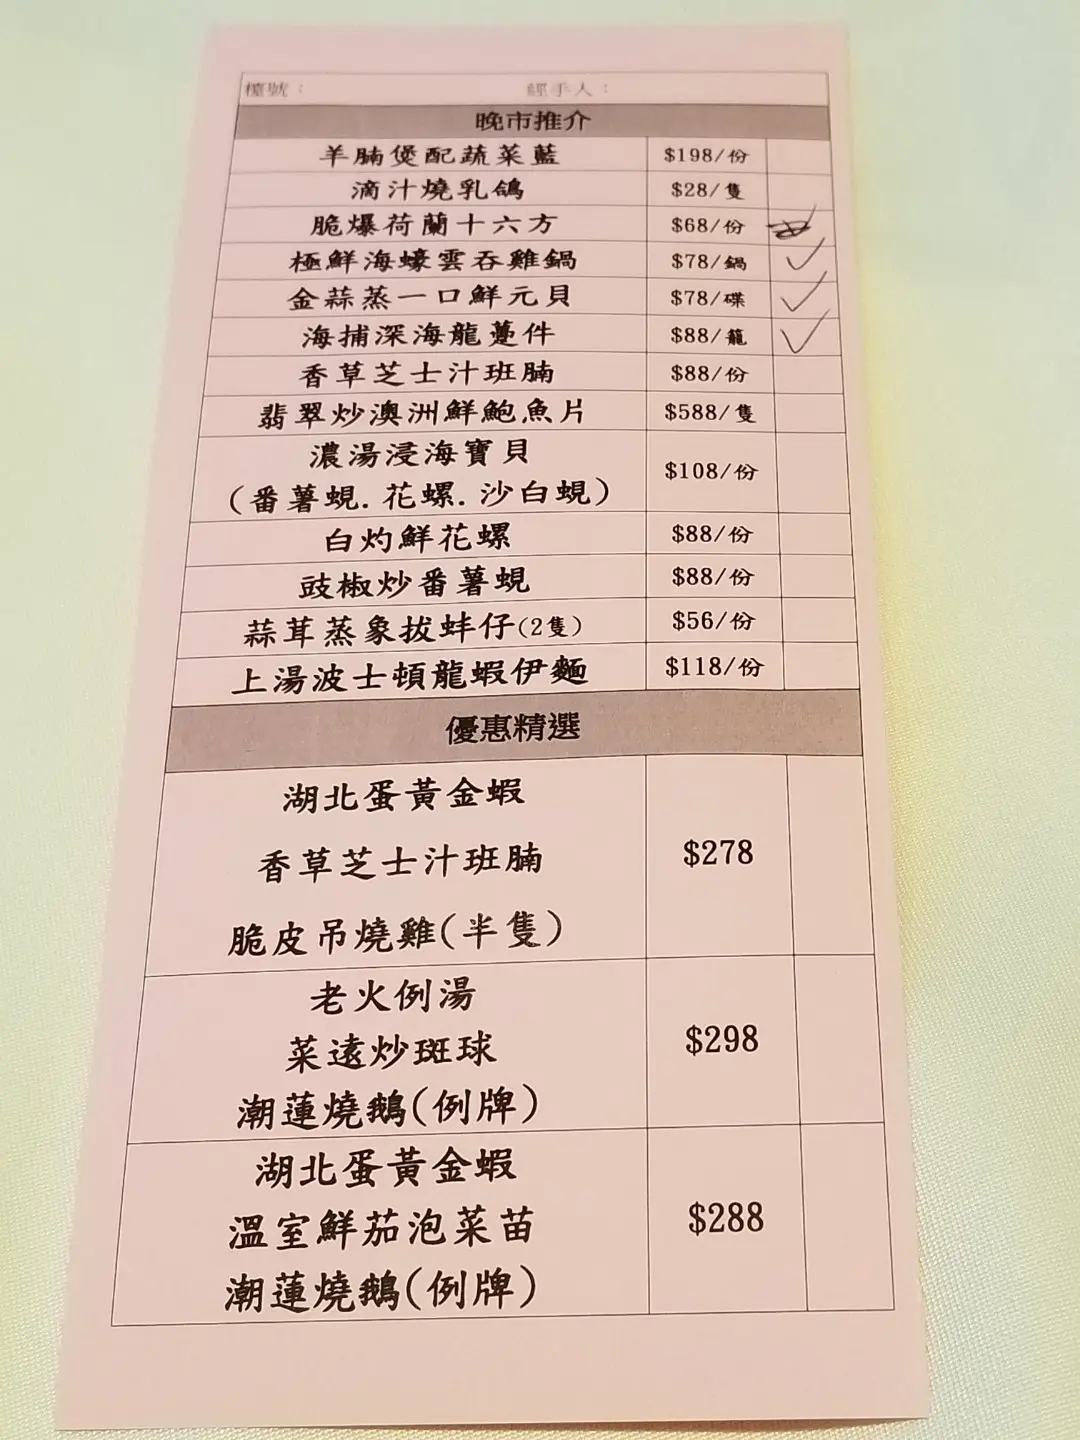 檯號： 經手人：
晚市推介
羊腩煲配蔬菜藍 $198/份
滴汁燒乳鴿 $28/隻
脆爆荷蘭十六方 $68/份
極鮮海蠔雲吞雞鍋 $78/鍋
金蒜蒸一口鮮元貝 $78/碟
海捕深海龍躉件 $88/籠
香草芝士汁班腩 $88/份
翡翠炒澳洲鮮鮑魚片 $588/隻
濃湯浸海寶貝
(番薯蜆.花螺.沙白蜆) $108/份
白灼鮮花螺 $88/份
豉椒炒番薯蜆 $88/份
蒜茸蒸象拔蚌仔(2隻) $56/份
上湯波士頓龍蝦伊麵 $118/份
優惠精選
湖北蛋黃金蝦
香草芝士汁班腩 $278
脆皮吊燒雞(半隻)
老火例湯
菜遠炒斑球 $298
潮蓮燒鵝(例牌)
湖北蛋黃金蝦
溫室鮮茄泡菜苗 $288
潮蓮燒鵝(例牌)